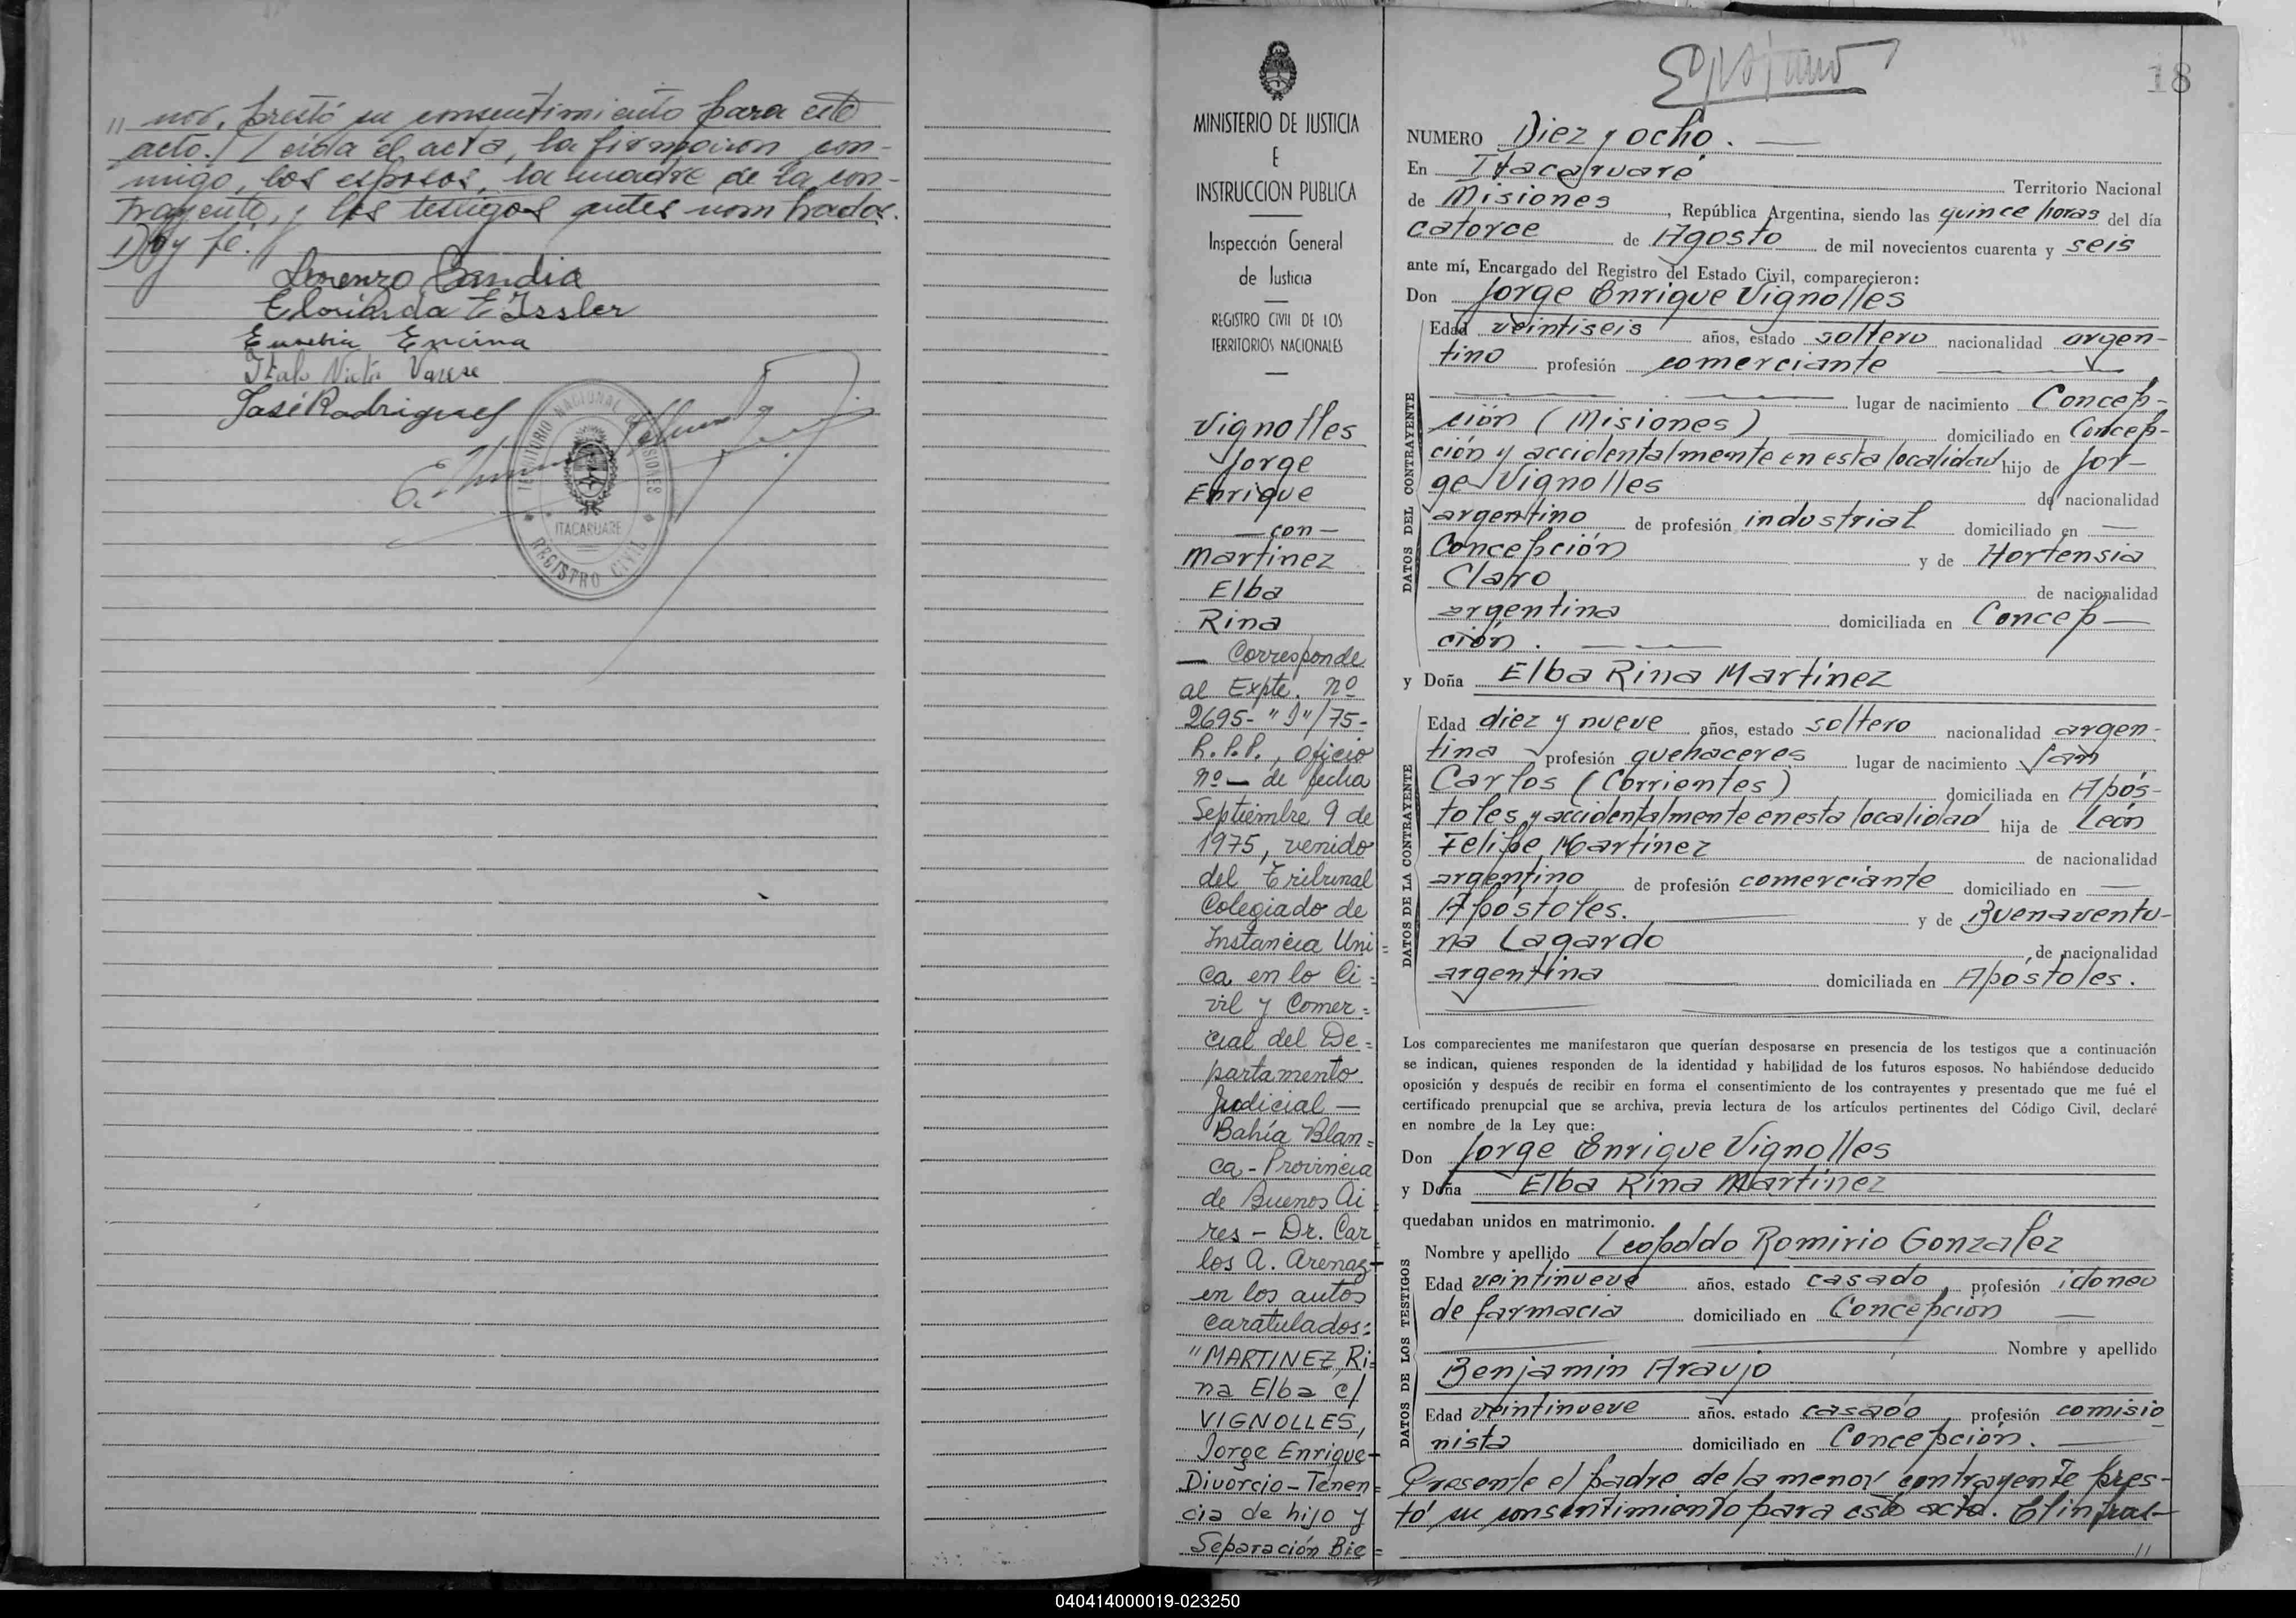 " nor, prestó su consentimiento para este
acto. Leída el acta, la firmaron con-
migo, los esposos, la madre de la con-
trayente, y los testigos antes nombrados.
Doy fe.
Lorenzo Candia
E Issler
Eusebia Encina
Italo Victor Varese
José Rodriguez
TERRITORIO NACIONAL DE MISIONES
ITACARUARE
REGISTRO CIVIL
MINISTERIO DE JUSTICIA
E
INSTRUCCION PUBLICA
Inspección General
de Justicia
REGISTRO CIVIL DE LOS
TERRITORIOS NACIONALES
Vignolles
Jorge
Enrique
—con—
Martinez
Elba
Rina
— Corresponde
al Expte. nº
2695- "J"/75-
R.P.P., oficio
nº — de fecha
Septiembre 9 de
1975, venido
del Tribunal
Colegiado de
Instancia Uni=
ca en lo Ci=
vil y Comer=
cial del De=
partamento
Judicial —
Bahía Blan=
ca - Provincia
de Buenos Ai
res - Dr. Car
los A. Arenaz
en los autos
caratulados:
"MARTINEZ, Ri=
na Elba c/
VIGNOLLES,
Jorge Enrique-
Divorcio-Tenen=
cia de hijo y
Separación Bie=
18
NUMERO Diez y ocho.
En Itacaruaré Territorio Nacional
de Misiones, República Argentina, siendo las quince horas del día
catorce de Agosto de mil novecientos cuarenta y seis
ante mí, Encargado del Registro del Estado Civil, comparecieron:
Don Jorge Enrique Vignolles
DATOS DEL CONTRAYENTE
Edad veintiseis años, estado soltero nacionalidad argen-
tino profesión comerciante
lugar de nacimiento Concep-
ción (Misiones) domiciliado en Concep-
ción y accidentalmente en esta localidad hijo de Jor-
ge Vignolles de nacionalidad
argentino de profesión industrial domiciliado en —
Concepción y de Hortensia
Claro de nacionalidad
argentina domiciliada en Concep—
ción.
y Doña Elba Rina Martínez
DATOS DE LA CONTRAYENTE
Edad diez y nueve años, estado soltero nacionalidad argen-
tina profesión quehaceres lugar de nacimiento San
Carlos (Corrientes) domiciliada en Após-
toles y accidentalmente en esta localidad hija de León
Felipe Martínez de nacionalidad
argentino de profesión comerciante domiciliado en —
Apóstoles. y de Buenaventu-
na Lagardo de nacionalidad
argentina domiciliada en Apóstoles.
Los comparecientes me manifestaron que querían desposarse en presencia de los testigos que a continuación
se indican, quienes responden de la identidad y habilidad de los futuros esposos. No habiéndose deducido
oposición y después de recibir en forma el consentimiento de los contrayentes y presentado que me fué el
certificado prenupcial que se archiva, previa lectura de los artículos pertinentes del Código Civil, declaré
en nombre de la Ley que:
Don Jorge Enrique Vignolles
y Doña Elba Rina Martínez
quedaban unidos en matrimonio.
DATOS DE LOS TESTIGOS
Nombre y apellido Leopoldo Romirio Gonzalez
Edad veintinueve años, estado casado, profesión idoneo
de farmacia domiciliado en Concepción —
Nombre y apellido
Benjamin Araujo
Edad veintinueve años, estado casado profesión comisio
nista domiciliado en Concepción. —
Presente el padre de la menor contrayente pres-
tó su consentimiento para este acto. El
"
040414000019-023250